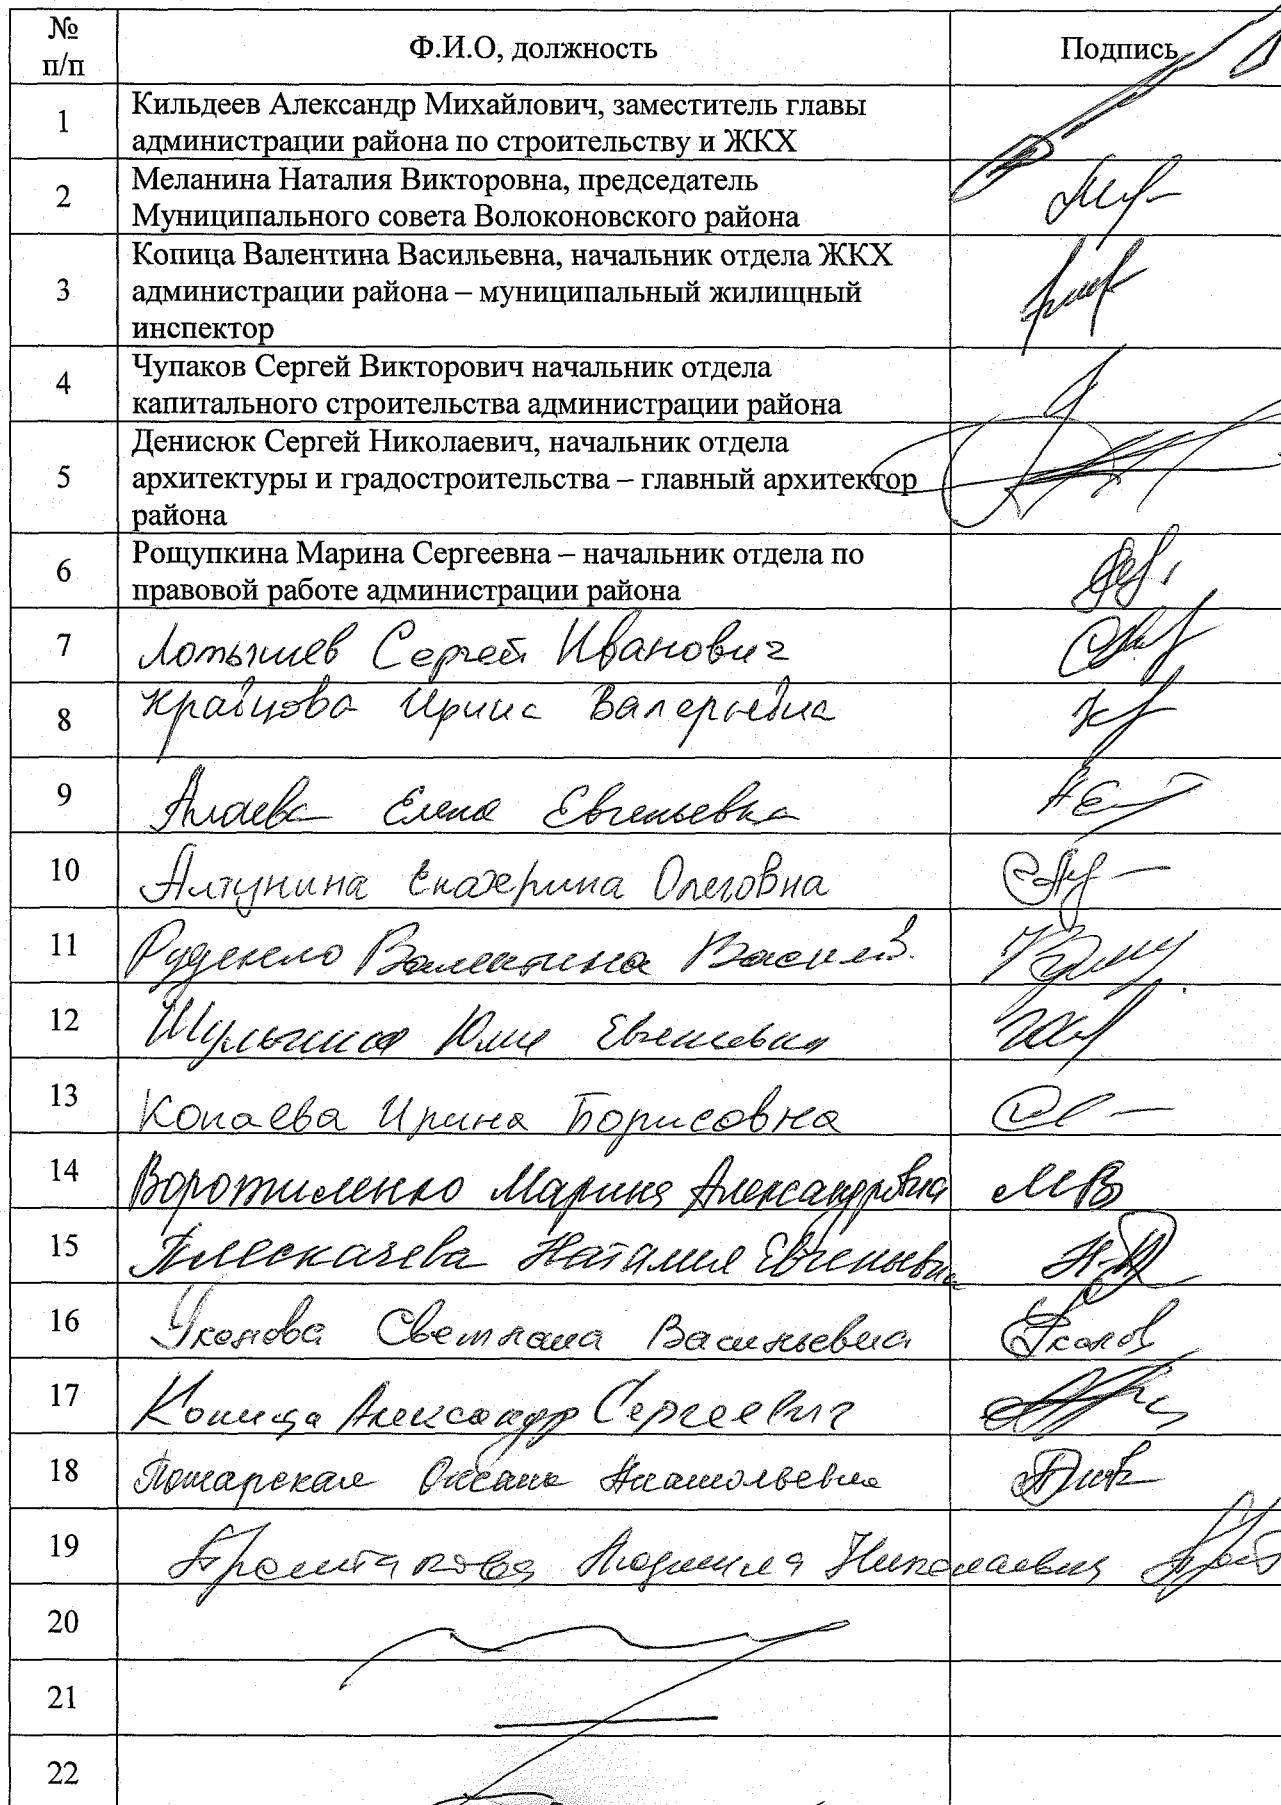 № п/п Ф.И.О, должность Подпись
1 Кильдеев Александр Михайлович, заместитель главы
администрации района по строительству и ЖКХ
2 Меланина Наталия Викторовна, председатель
Муниципального совета Волоконовского района
3 Копица Валентина Васильевна, начальник отдела ЖКХ
администрации района – муниципальный жилищный
инспектор
4 Чупаков Сергей Викторович начальник отдела
капитального строительства администрации района
5 Денисюк Сергей Николаевич, начальник отдела
архитектуры и градостроительства – главный архитектор
района
6 Рощупкина Марина Сергеевна – начальник отдела по
правовой работе администрации района
7 Лотышев Сергей Иванович
8 Кравцова Ирина Валерьевна
9 Елена Евгеньевна
10 Алтунина Екатерина Олеговна
11 Руденко Валентина Василь.
12 Шульгина Юлия Евгеньевна
13 Копаева Ирина Борисовна
14 Ворожиленко Марина Александровна МВ
15 Плескачева Наталия Евгеньевна
16 Уколова Светлана Васильевна
17 Копица Александр Сергеевич
18 Пожарская Оксана Анатольевна
19 Людмила Николаевна
20
21
22